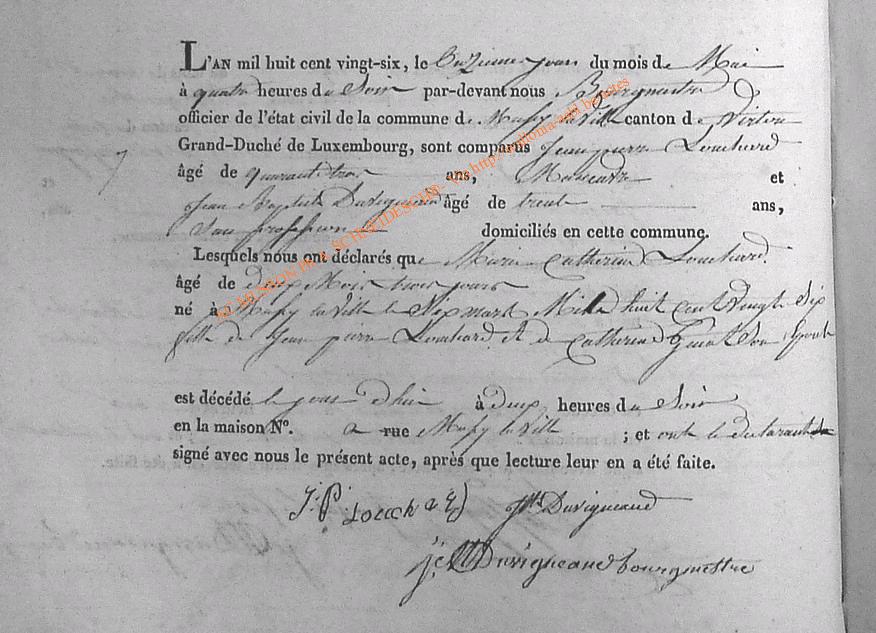 L'AN mil huit cent vingt-six, le Onzieme jour du mois de Mai
à quatre heures du Soir par-devant nous Bourgmestre
officier de l'état civil de la commune de Mussy la Ville canton de Virton
Grand-Duché de Luxembourg, sont comparus Jean pierre Louchard
âgé de quarante trois ans, et
Jean Baptiste Duvigneaud âgé de trente ans,
San profession domiciliés en cette commune.
Lesquels nous ont déclarés que Marie Catherine Louchard
âgé de deux Mois trois jours
né à Mussy la Ville le mars Mille huit Cent Vingt Six
fille de Jean pierre Louchard et de Catherine Son Epouse
est décédé le jour dhui à deux heures du Soir
en la maison N°. a rue Mussy la Ville ; et ont le declarant
signé avec nous le présent acte, après que lecture leur en a été faite.
J. P. Louchard Duvigneaud
Duvigneaud bourgmestre